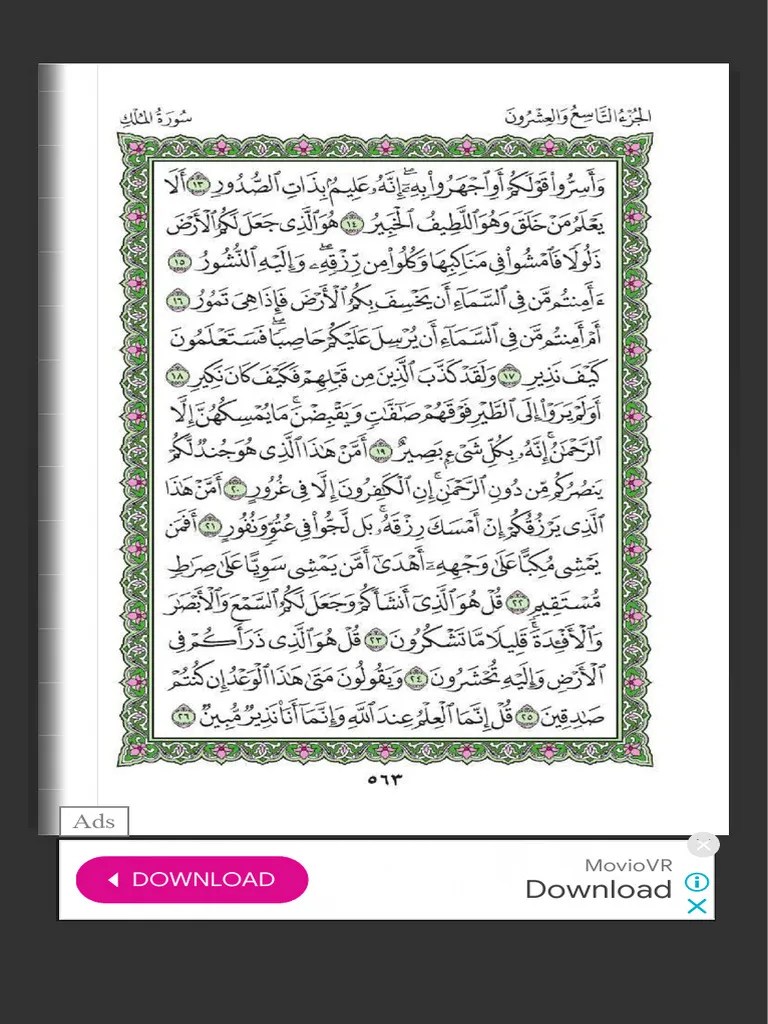 الجزء التاسع والعشرون
سورة الملك
وَأَسِرُّوا۟ قَوْلَكُمْ أَوِ ٱجْهَرُوا۟ بِهِۦٓ ۖ إِنَّهُۥ عَلِيمٌۢ بِذَاتِ ٱلصُّدُورِ ١٣ أَلَا
يَعْلَمُ مَنْ خَلَقَ وَهُوَ ٱللَّطِيفُ ٱلْخَبِيرُ ١٤ هُوَ ٱلَّذِى جَعَلَ لَكُمُ ٱلْأَرْضَ
ذَلُولًا فَٱمْشُوا۟ فِى مَنَاكِبِهَا وَكُلُوا۟ مِن رِّزْقِهِۦ ۖ وَإِلَيْهِ ٱلنُّشُورُ ١٥
ءَأَمِنتُم مَّن فِى ٱلسَّمَآءِ أَن يَخْسِفَ بِكُمُ ٱلْأَرْضَ فَإِذَا هِىَ تَمُورُ ١٦
أَمْ أَمِنتُم مَّن فِى ٱلسَّمَآءِ أَن يُرْسِلَ عَلَيْكُمْ حَاصِبًا ۖ فَسَتَعْلَمُونَ
كَيْفَ نَذِيرِ ١٧ وَلَقَدْ كَذَّبَ ٱلَّذِينَ مِن قَبْلِهِمْ فَكَيْفَ كَانَ نَكِيرِ ١٨
أَوَلَمْ يَرَوْا۟ إِلَى ٱلطَّيْرِ فَوْقَهُمْ صَٰٓفَّٰتٍ وَيَقْبِضْنَ ۚ مَا يُمْسِكُهُنَّ إِلَّا
ٱلرَّحْمَٰنُ ۚ إِنَّهُۥ بِكُلِّ شَىْءٍۭ بَصِيرٌ ١٩ أَمَّنْ هَٰذَا ٱلَّذِى هُوَ جُندٌ لَّكُمْ
يَنصُرُكُم مِّن دُونِ ٱلرَّحْمَٰنِ ۚ إِنِ ٱلْكَٰفِرُونَ إِلَّا فِى غُرُورٍ ٢٠ أَمَّنْ هَٰذَا
ٱلَّذِى يَرْزُقُكُمْ إِنْ أَمْسَكَ رِزْقَهُۥ ۚ بَل لَّجُّوا۟ فِى عُتُوٍّ وَنُفُورٍ ٢١ أَفَمَن
يَمْشِى مُكِبًّا عَلَىٰ وَجْهِهِۦٓ أَهْدَىٰٓ أَمَّن يَمْشِى سَوِيًّا عَلَىٰ صِرَٰطٍ
مُّسْتَقِيمٍ ٢٢ قُلْ هُوَ ٱلَّذِىٓ أَنشَأَكُمْ وَجَعَلَ لَكُمُ ٱلسَّمْعَ وَٱلْأَبْصَٰرَ
وَٱلْأَفْـِٔدَةَ ۖ قَلِيلًا مَّا تَشْكُرُونَ ٢٣ قُلْ هُوَ ٱلَّذِى ذَرَأَكُمْ فِى
ٱلْأَرْضِ وَإِلَيْهِ تُحْشَرُونَ ٢٤ وَيَقُولُونَ مَتَىٰ هَٰذَا ٱلْوَعْدُ إِن كُنتُمْ
صَٰدِقِينَ ٢٥ قُلْ إِنَّمَا ٱلْعِلْمُ عِندَ ٱللَّهِ وَإِنَّمَآ أَنَا۠ نَذِيرٌ مُّبِينٌ ٢٦
٥٦٣
Ads
DOWNLOAD
MovioVR
Download